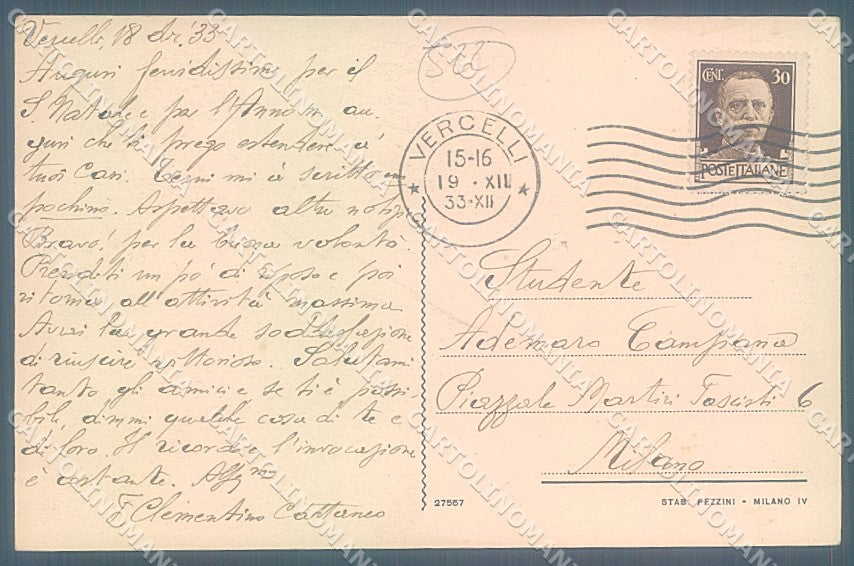 Vercelli, 18 dic. '33
Auguri fervidissimi per il
S. Natale e per l'Anno n. au-
guri che ti prego estendere a'
tuoi Cari. Termi mi à scritto un
pochino. Aspettavo altre notizie
Bravo! per la buona volontà.
Prenditi un po' di riposo e poi
ritorna all'attività massima
Avrai la grande soddisfazione
di riuscire vittorioso. Salutami
tanto gli amici e se ti è possi-
bile, dimmi qualche cosa di te e
di loro. Il ricordo e l'invocazione
è costante. Aff.mo
F. Clementino Cattaneo
528
VERCELLI
15-16
19 · XII
33·XII
CENT. 30
POSTE ITALIANE
Studente
Ademaro Campiana
Piazzale Martiri Fascisti 6
Milano
27557
STAB. PEZZINI - MILANO IV
CARTOLINOMANIA